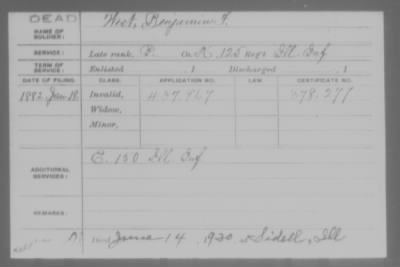 DEAD
NAME OF SOLDIER: West, Benjamin F.
SERVICE: Late rank, P. Co. K, 125 Reg't Ill. Inf
TERM OF SERVICE: Enlisted , 1 Discharged , 1
DATE OF FILING. CLASS. APPLICATION NO. LAW. CERTIFICATE NO.
1882 Jan 18 Invalid, 437.967 378.277
Widow,
Minor,
ADDITIONAL SERVICES: E. 150 Ill. Inf
REMARKS:
died June 14, 1920 at Sidell, Ill